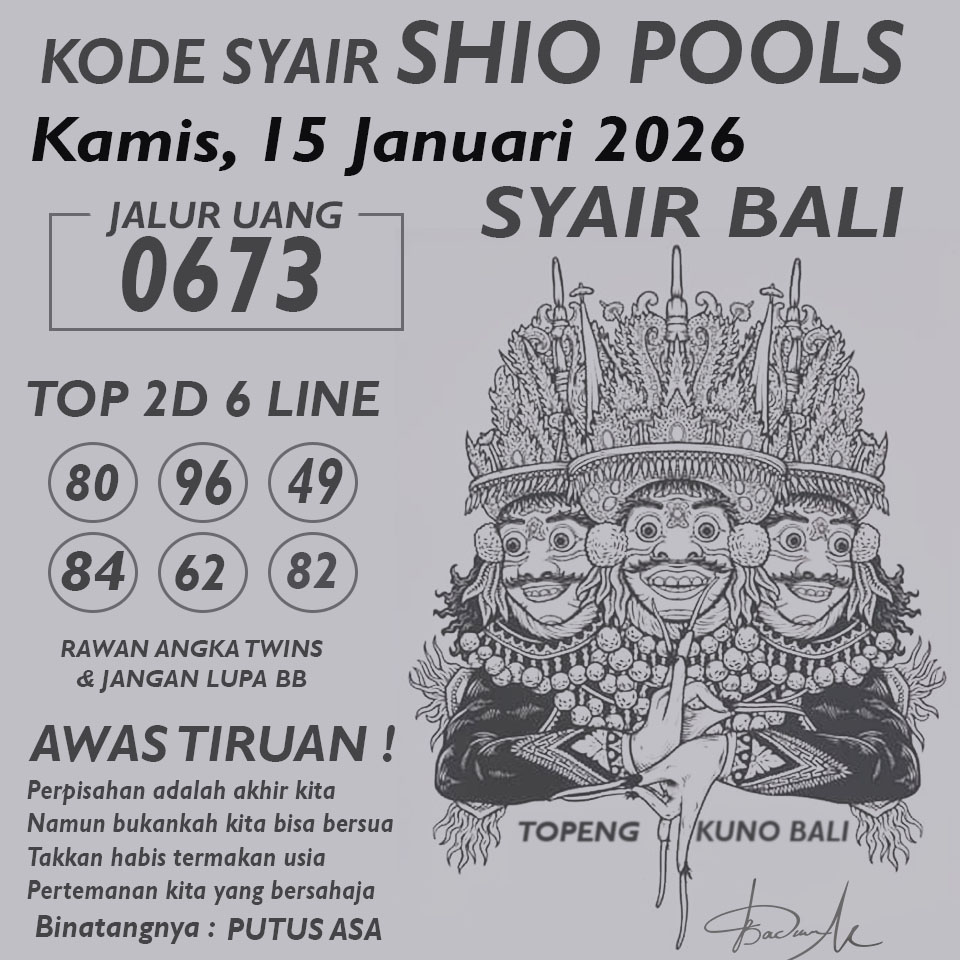 KODE SYAIR SHIO POOLS
Kamis, 15 Januari 2026
SYAIR BALI
JALUR UANG
0673
TOP 2D 6 LINE
80 96 49
84 62 82
RAWAN ANGKA TWINS
& JANGAN LUPA BB
AWAS TIRUAN !
Perpisahan adalah akhir kita
Namun bukankah kita bisa bersua
Takkan habis termakan usia
Pertemanan kita yang bersahaja
Binatangnya : PUTUS ASA
TOPENG KUNO BALI